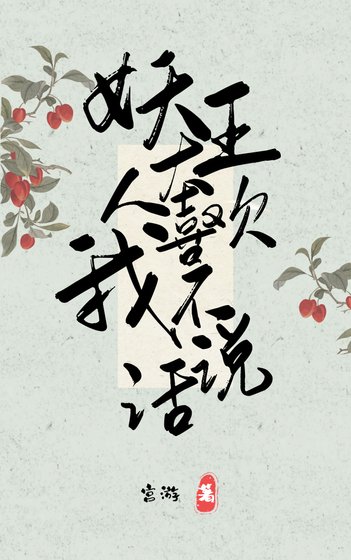 妖王大人喜欢我不说话
宫游 著